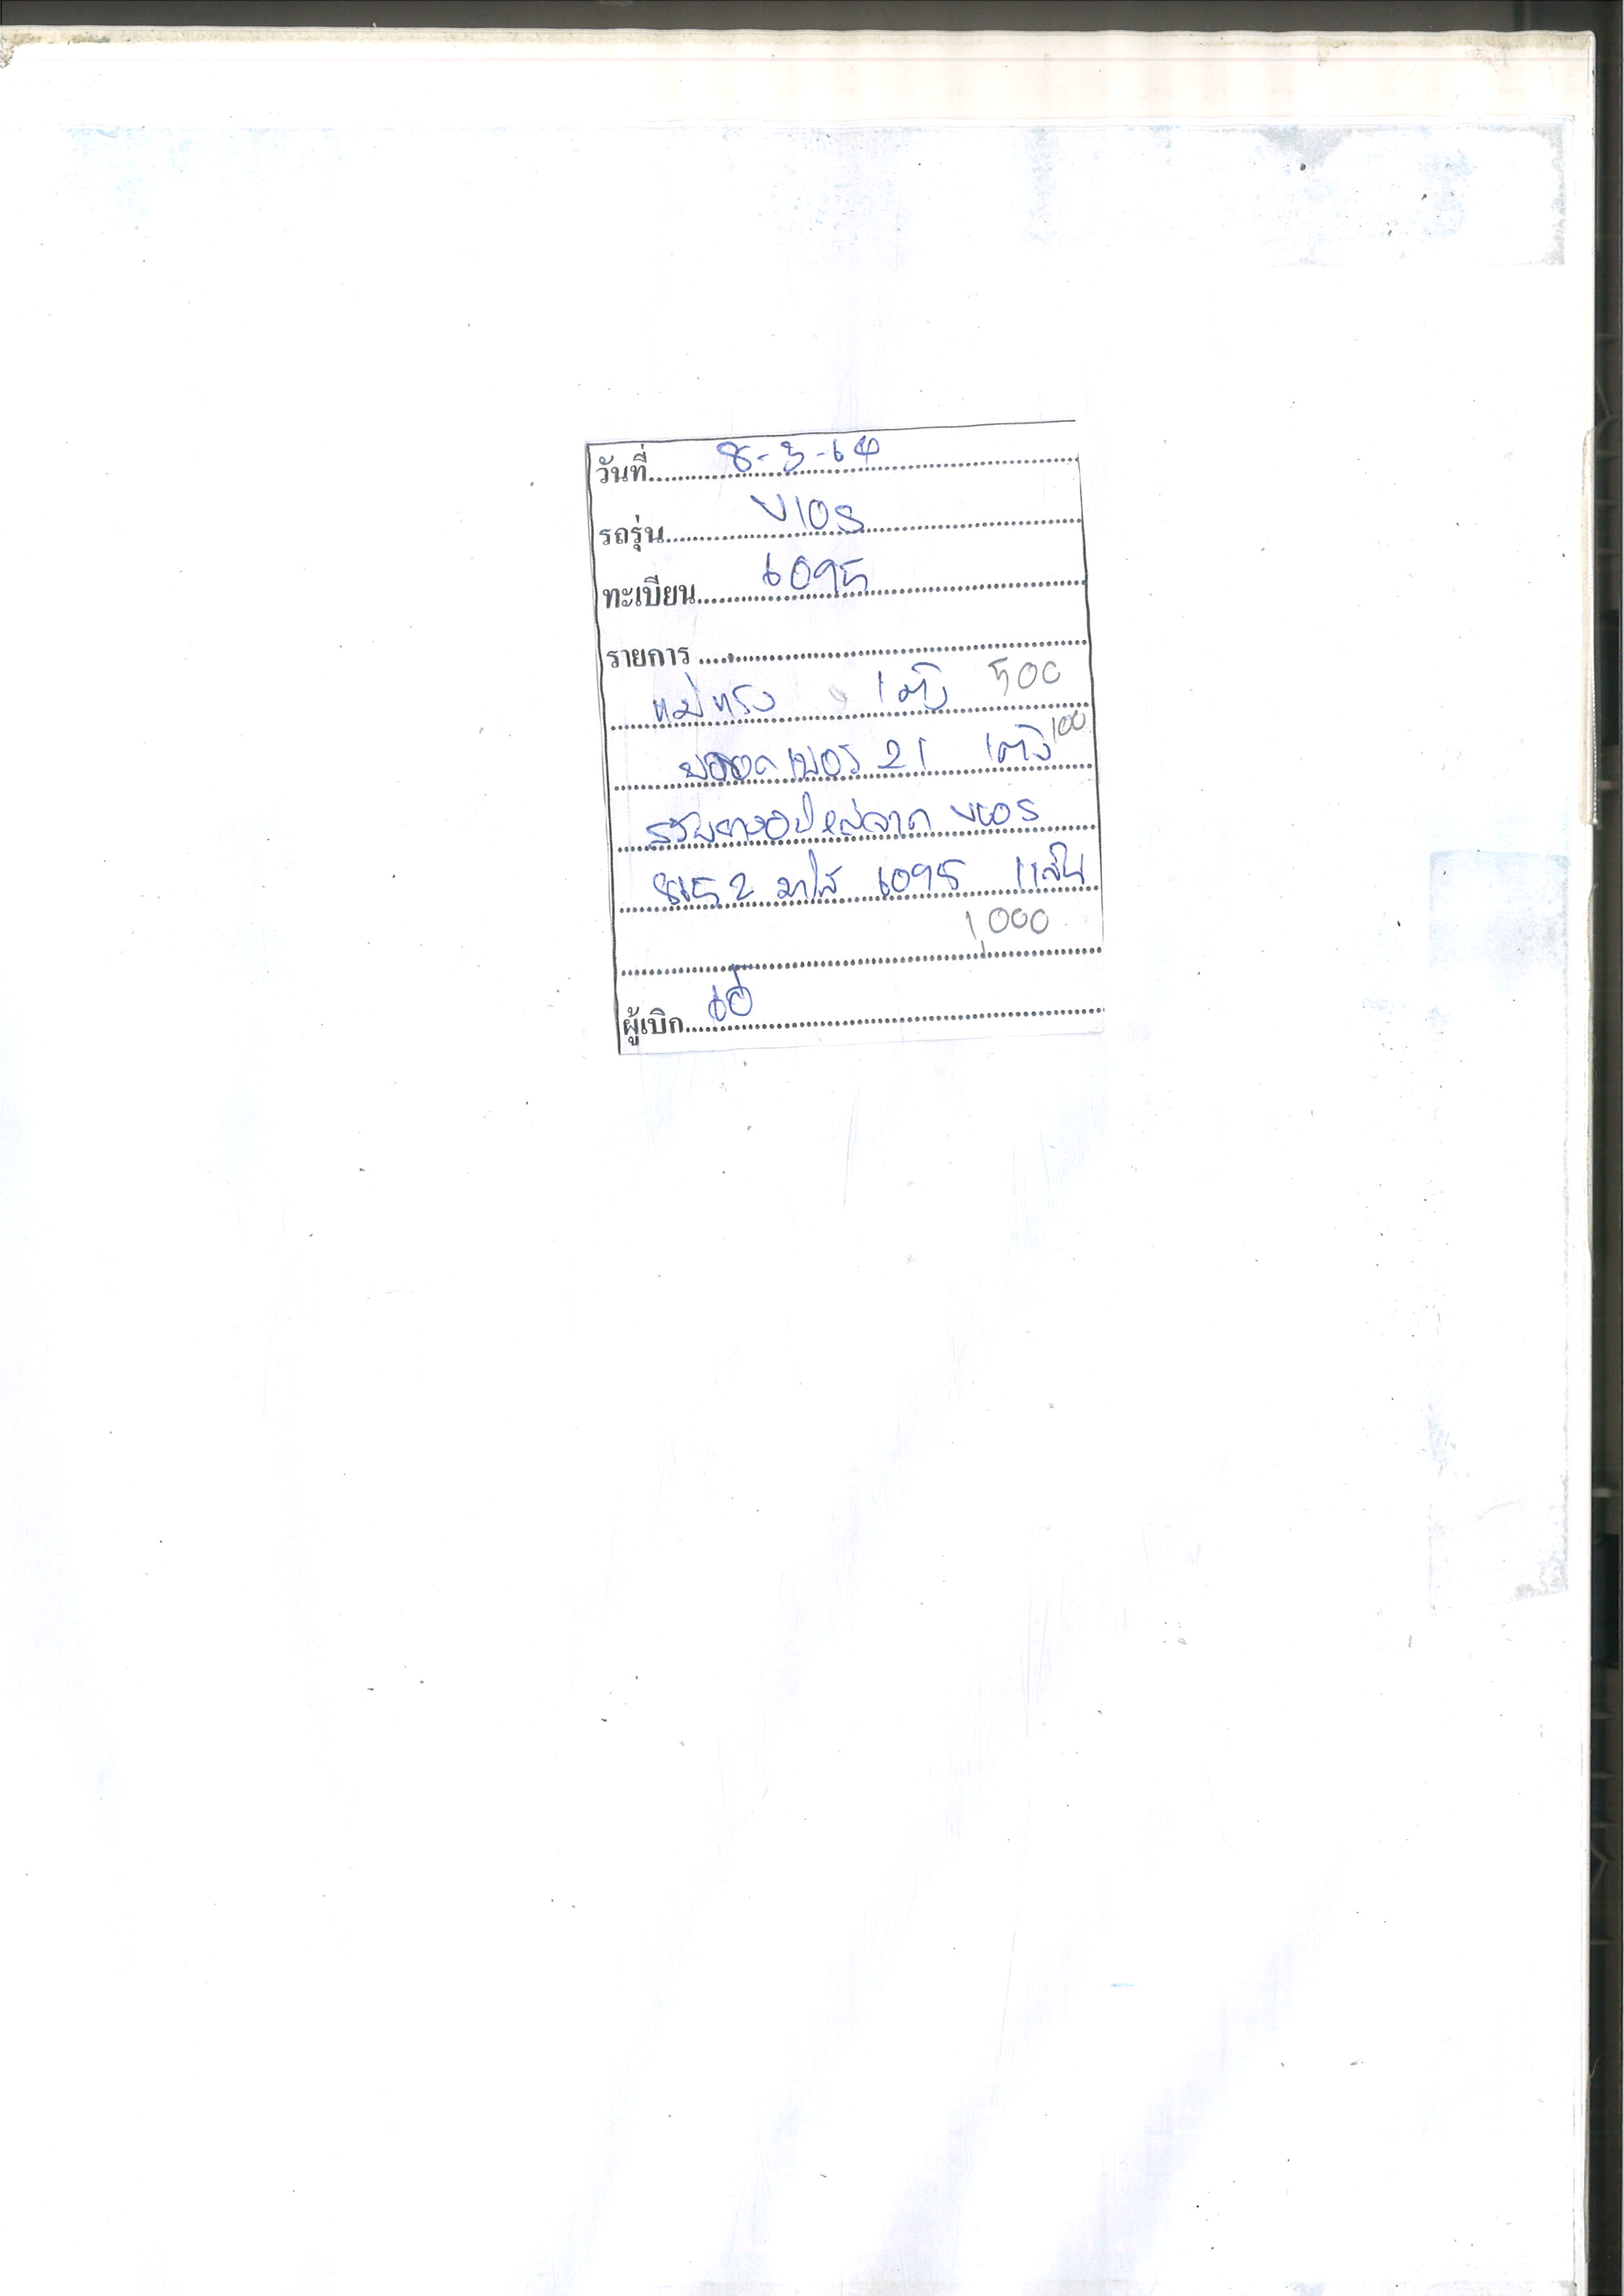 วันที่ 8-3-64
รถรุ่น VIOS
ทะเบียน 6095
รายการ
แม่แรง 1 ตัว 500
บล็อค เบอร์ 21 1 ตัว 100
สลับยางอะไหล่จาก VIOS
8652 มาใส่ 6095 1 เส้น
1,000
ผู้เบิก เอ๋